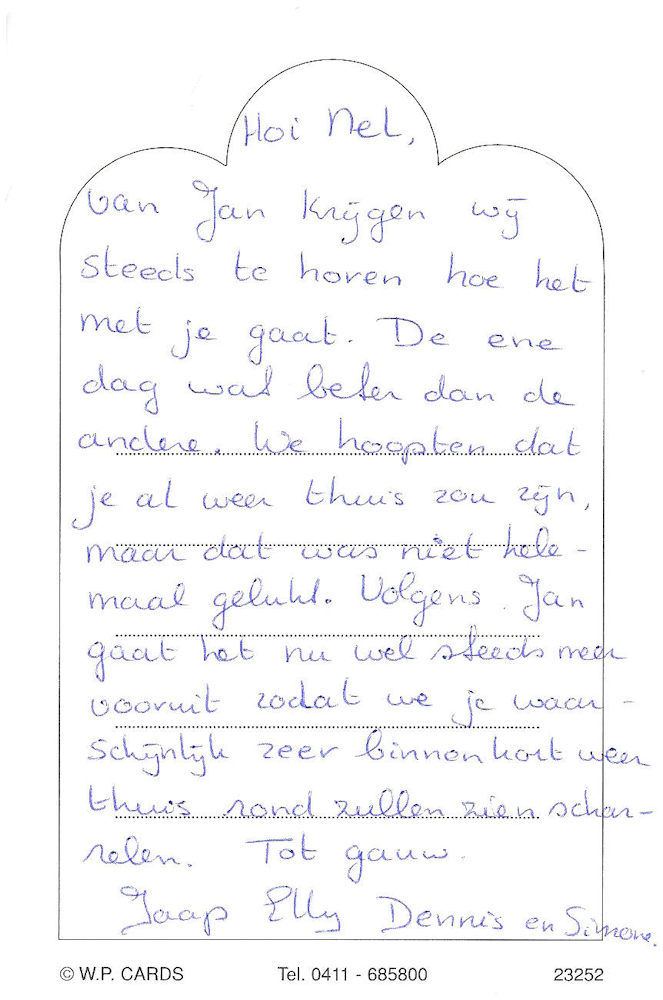 Hoi Nel,
van Jan krijgen wij
steeds te horen hoe het
met je gaat. De ene
dag wat beter dan de
andere. We hoopten dat
je al weer thuis zou zijn,
maar dat was niet hele-
maal gelukt. Volgens Jan
gaat het nu wel steeds meer
vooruit zodat we je waar-
schijnlijk zeer binnenkort weer
thuis rond zullen zien schar-
relen. Tot gauw.
Jaap Elly Dennis en Simone.
© W.P. CARDS Tel. 0411 - 685800 23252